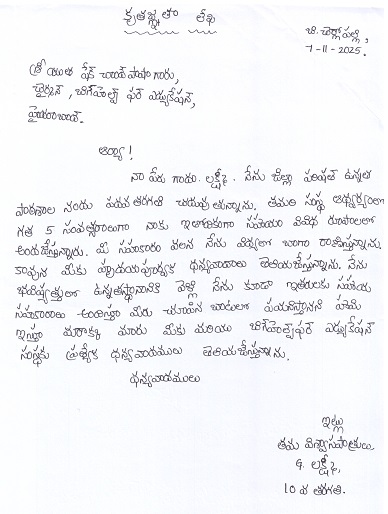 కృతజ్ఞతా లేఖ
బి. చెర్లోపల్లి,
7-11-2025.
శ్రీ యుత షేక్ చాంద్ పాషా గారు,
చైర్మన్, బిగ్‌హెల్ప్ ఫర్ ఎడ్యుకేషన్,
హైదరాబాద్.
ఆర్యా!
నా పేరు గాదం. లక్ష్మీ. నేను జిల్లా పరిషత్ ఉన్నత
పాఠశాల నందు పదవ తరగతి చదువుతున్నాను. తమరి సంస్థ ఆధ్వర్యంలో
గత 5 సంవత్సరాలుగా నాకు ఇతోధికంగా సహాయం వివిధ రూపాలలో
అందజేస్తున్నారు. మీ సహకారం వలన నేను విద్యలో బాగా రాణిస్తున్నాను.
కావున మీకు హృదయపూర్వక ధన్యవాదాలు తెలియజేస్తున్నాను. నేను
భవిష్యత్తులో ఉన్నతస్థానానికి వెళ్లి నేను కూడా ఇతరులకు సహాయ
సహకారాలు అందిస్తూ మీరు చూపిన బాటలో పయనిస్తానని హామి
ఇస్తూ మరొక్క మారు మీకు మరియు బిగ్‌హెల్ప్ ఫర్ ఎడ్యుకేషన్
సంస్థకు ప్రత్యేక ధన్యవాదములు తెలియజేస్తున్నాను.
ధన్యవాదములు
ఇట్లు
తమ విశ్వాసపాత్రులు.
G. లక్ష్మీ,
10 వ తరగతి.